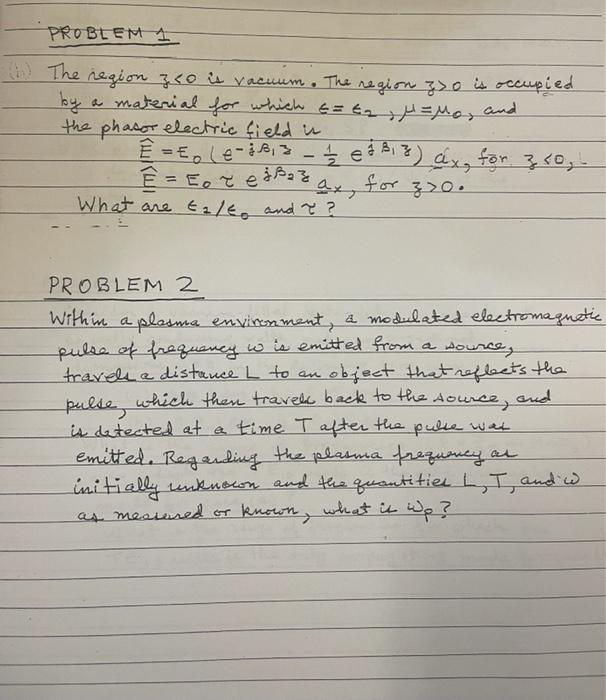 PROBLEM 1
The region z<0 is vacuum. The region z>0 is occupied
by a material for which ϵ=ϵ₂, μ=μ₀, and
the phasor electric field is
Ê = E₀ (e^{-jβ₁z} - 1/2 e^{jβ₁z}) a_x, for z<0,
Ê = E₀ τ e^{jβ₂z} a_x, for z>0.
What are ϵ₂/ϵ₀ and τ?
PROBLEM 2
Within a plasma environment, a modulated electromagnetic
pulse of frequency ω is emitted from a source,
travels a distance L to an object that reflects the
pulse, which then travels back to the source, and
is detected at a time T after the pulse was
emitted. Regarding the plasma frequency as
initially unknown and the quantities L, T, and ω
as measured or known, what is ωp?